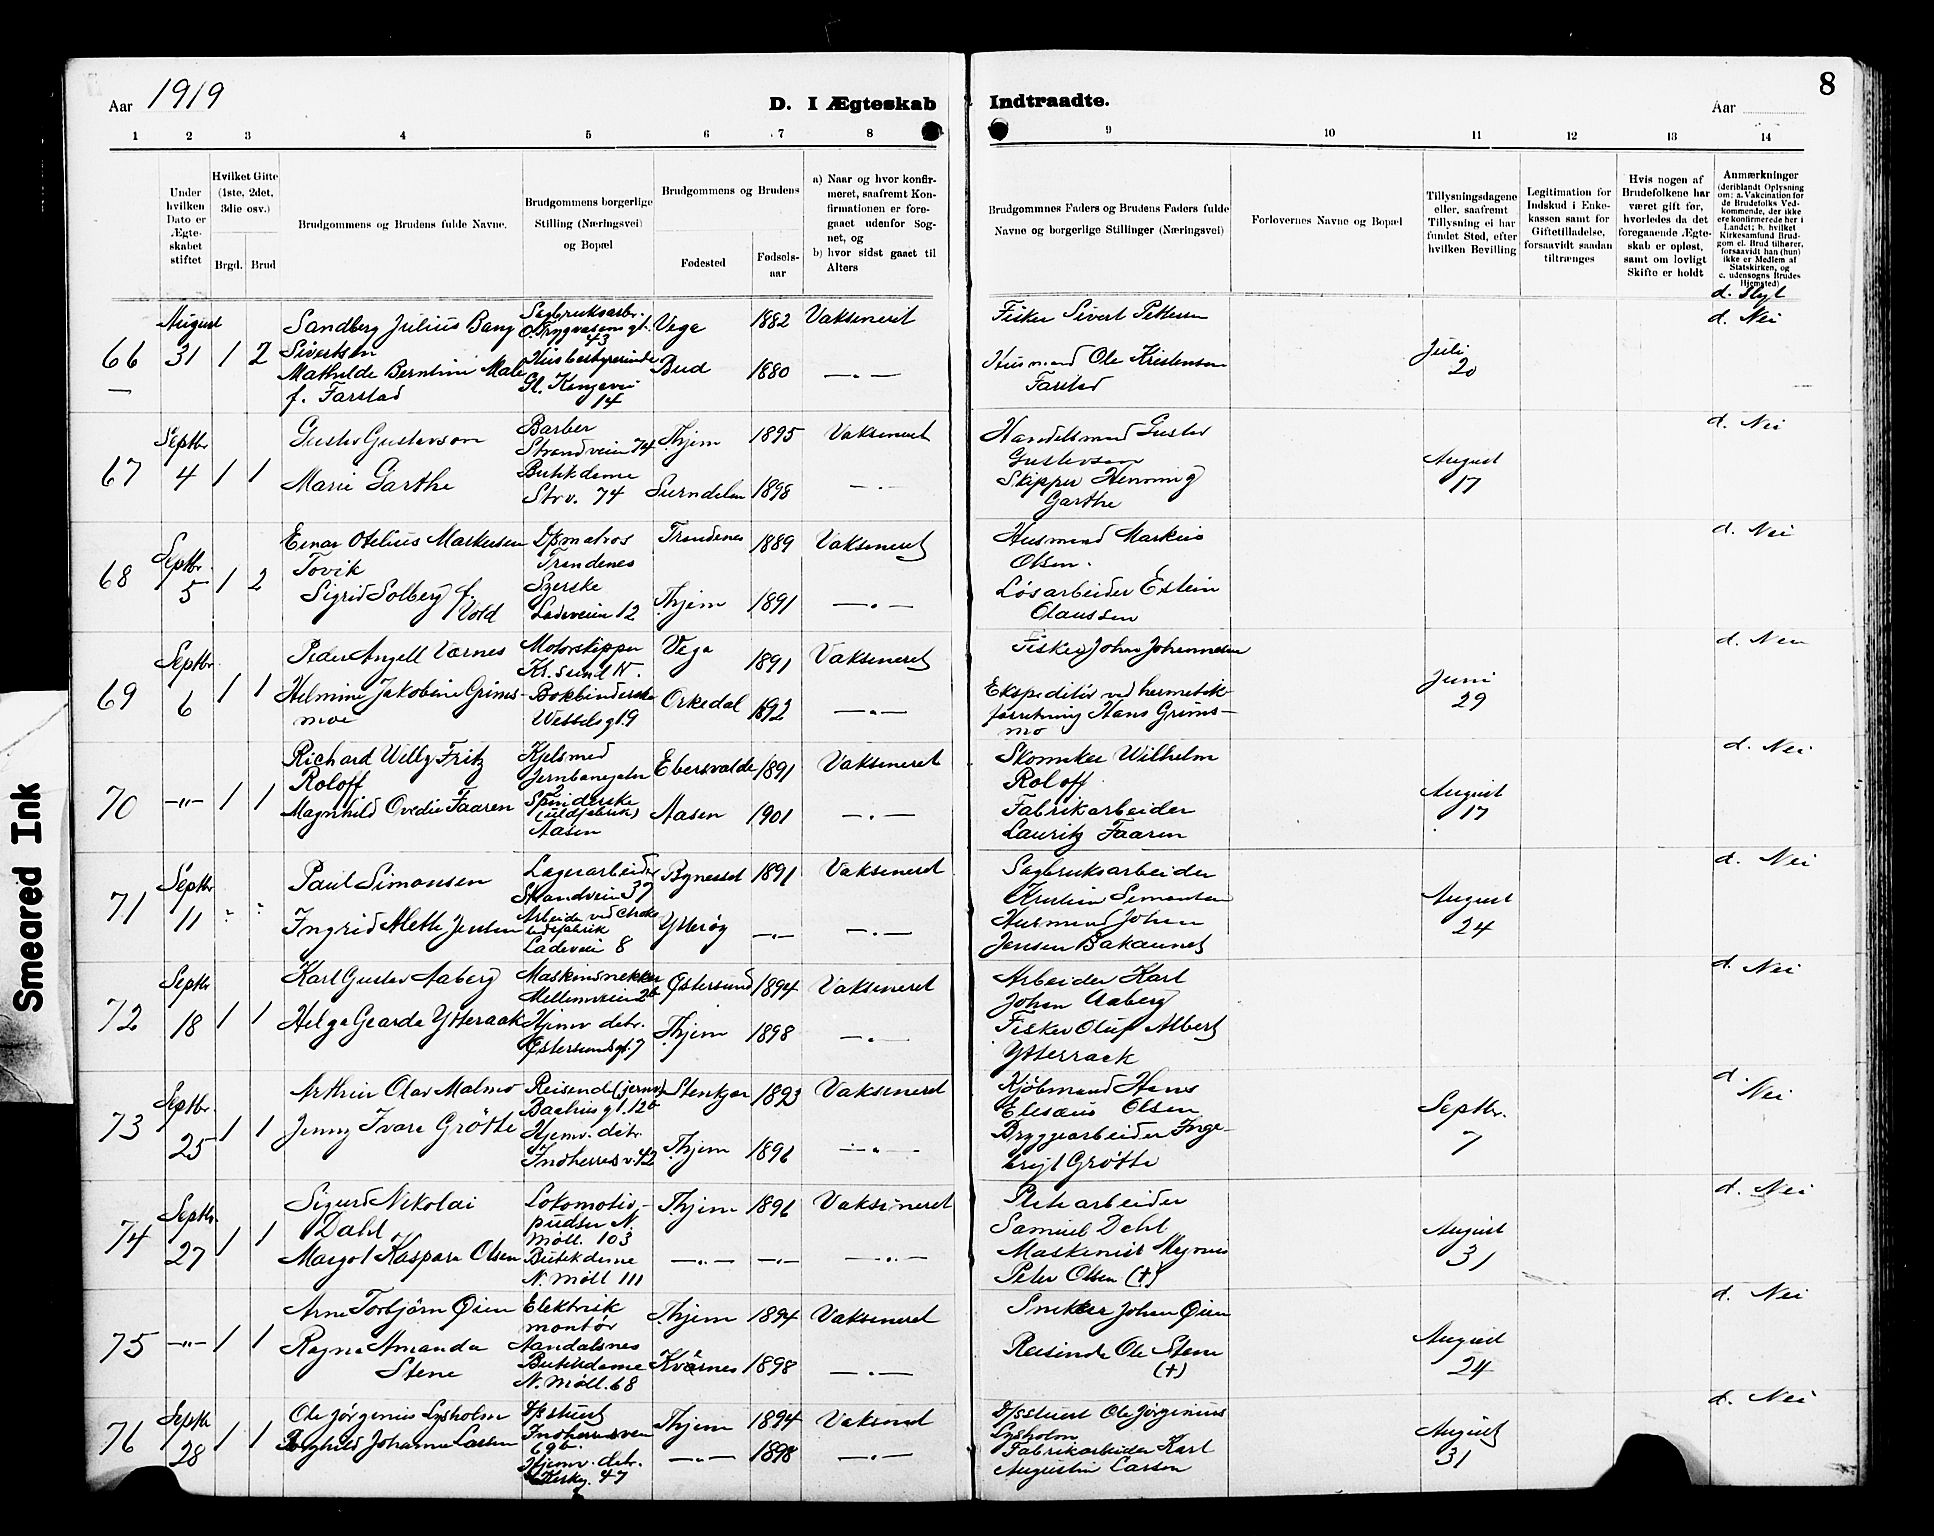 8
Aar 1919
D. I Ægteskab Indtraadte.
Aar
1 2 3 4 5 6 7 8 9 10 11 12 13 14
Under hvilken Dato er Ægteskabet stiftet
Hvilket Gifte (1ste, 2det, 3die osv.)
Brgd. Brud
Brudgommens og Brudens fulde Navne.
Brudgommens borgerlige Stilling (Næringsvei) og Bopæl
Brudgommens og Brudens
Fødested
Fødselsaar
a) Naar og hvor konfirmeret, saafremt Konfirmationen er foregaaet udenfor Sognet, og
b) hvor sidst gaaet til Alters
Brudgommnes Faders og Brudens Faders fulde Navne og borgerlige Stillinger (Næringsvei)
Forlovernes Navne og Bopæl
Tillysningsdagene eller, saafremt Tillysning ei har fundet Sted, efter hvilken Bevilling
Legitimation for Indskud i Enkekassen samt for Giftetilladelse, forsaavidt saadan tiltrænges
Hvis nogen af Brudefolkene har været gift før, hvorledes da det foregaaende Ægteskab er opløst, samt om lovligt Skifte er holdt
Anmærkninger
(deriblandt Oplysning om: a. Vakcination for de Brudefolks Vedkommende, der ikke ere konfirmerede her i Landet; b. hvilket Kirkesamfund Brudgom el. Brud tilhører, forsaavidt han (hun) ikke er Medlem af Statskirken, og c. udensogns Brudes Hjemsted)
66 August 31 1 2
Sandberg Julius Bang Sivertsen
Vega 1882 Vaksineret
Fisker Sivert Pettersen
d. Nei
Mathilde f. Farstad
Gl. Kongevei 14
Bud 1880 —"—
Husmand Ole Kristensen Farstad
Juli 20
67 Septbr 4 1 1
Gustav Gustavson
Barber Strandveien 74
Thjem 1895 Vaksineret
Handelsmand Gustav Gustavson
August 17
d. Nei
Marie Garthe
Butikdame Strv. 74
Surndalen 1898 —"—
Skipper Henning Garthe
68 Septbr. 5 1 2
Einar Otelius Markusen Tovik
D/s matros Trondenes
Trondenes 1889 Vaksineret
Husmand Markus Olsen.
d. Nei
Sigrid Solberg f. Vold
Syerske Ladeveien 12
Thjem 1891 —"—
Løsarbeider Olaussen
69 Septbr 6 1 1
Peder Angell Værnes
Motorskipper Kr.sund N.
Vega 1891 Vaksineret
Fisker Johan Johannesen
Juni 29
d. Nei
Helmine Jakobine Grimsmoe
Bokbinderske Wessels gt. 9
Orkedal 1892 —"—
Ekspeditør ved hermetikforretning Hans Grimsmo
70 —"— 1 1
Richard Willy Fritz Roloff
Kjelsmed Jernbanegaten 2
Ebersvalde 1891 Vaksineret
Wilhelm Roloff
August 17
d. Nei
Magnhild Ovedie Faaren
Spinderske (uldfabrik) Aasen
Aasen 1901 —"—
Fabrikarbeider Lauritz Faaren
71 Septbr 11 " "
Paul Simonsen
Lagerarbeider Strandveien 37
Bynesset 1891 Vaksineret
Sagbruksarbeider Simonsen
August 24
d. Nei
Ingrid Alette Jensen
Ladevei 8
Ytterøy —"— —"—
Husmand Johan Jensen Bakaunet
72 Septbr 18 1 1
Karl Gustav Aaberg
Maskinsnekker Mellemveien 26
Østersund 1894 Vaksineret
Arbeider Karl Johan Aaberg
d. Nei
Helga Gearda Ytteraak
Hjemv. datr. Østersundsgt. 7
Thjem 1898 —"—
Fisker Oluf Albert Ytterraak
73 Septbr. 25 1 1
Arthur Olav Malmo
Reisende (jernv)
Stenkjær 1893 Vaksineret
Kjøbmand Hans Eliseus Olsen
Septbr. 7
d. Nei
Jenny Ivara Grötte
Hjemv. datr. Indherredsv. 42
Thjem 1896 —"—
Bryggearbeider Ingebrigt Grøtte
74 Septbr. 27 1 1
Sigurd Nikolai Dahl
Lokomotivpudser N. Møll. 103
Thjem 1896 Vaksineret
Samuel Dahl
August 31
d. Nei
Margot Kaspara Olsen
Butikdame N. Møll 111
—"— —"— —"—
Maskinist Magnus Peter Olsen (†)
75 —"— 1 1
Arne Torbjörn Øien
Elektrisk montør Aandalsnes
Thjem 1894 Vaksineret
Snekker Johan Øien
August 24
d. Nei
Ragna Amanda Stene
Butikdame N. Møll. 68
Kværnes 1898 —"—
Reisende Ole Stene (†)
76 Septbr 28 1 1
Ole Jørgenius Lysholm
D/s stuert Indherredsveien 69b.
Thjem 1894 Vaksineret
D/s stuert Ole Jørgenius Lysholm
August 31
d. Nei
Borghild Johanne Larsen
Hjemv. datr.
—"— 1898 —"—
Fabrikarbeider Karl Augustin Larsen
Smeared Ink